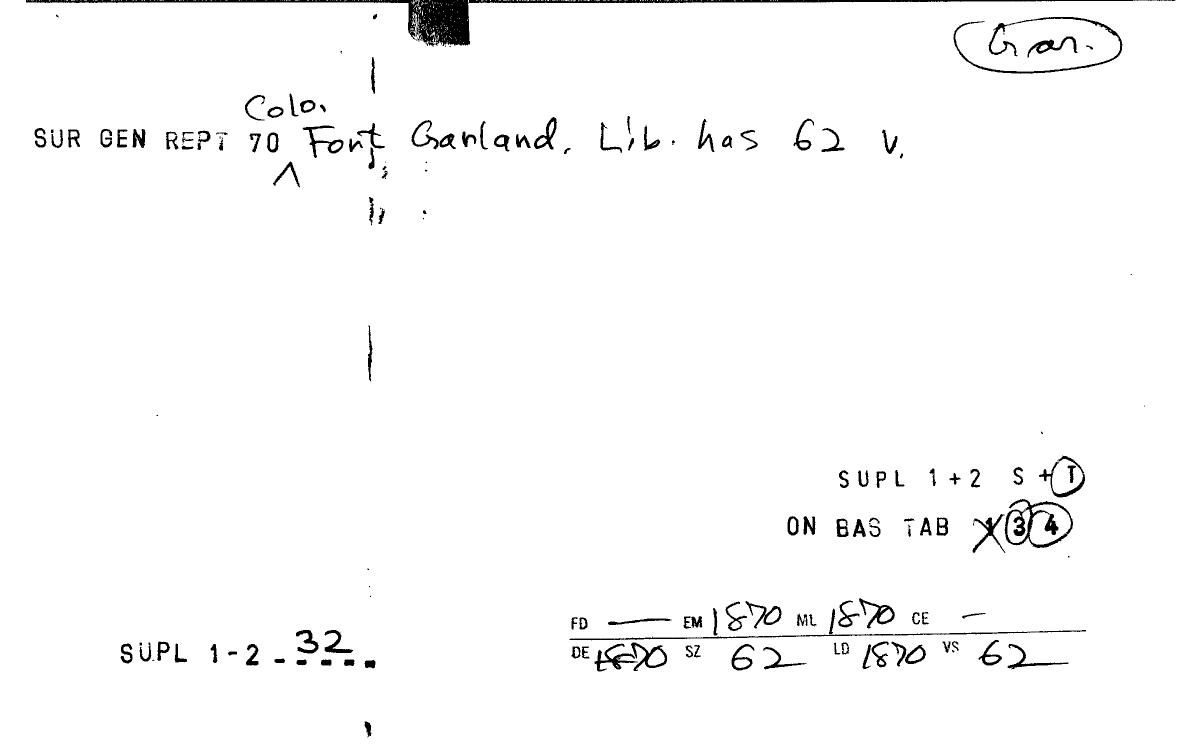 Gar.
Colo.
SUR GEN REPT 70 ^ Fort Garland. Lib. has 62 v.
SUPL 1+2 S + T
ON BAS TAB 1 3 4
FD — EM 1870 ML 1870 CE –
SUPL 1-2 - 32
DE 1870 SZ 62 LD 1870 VS 62